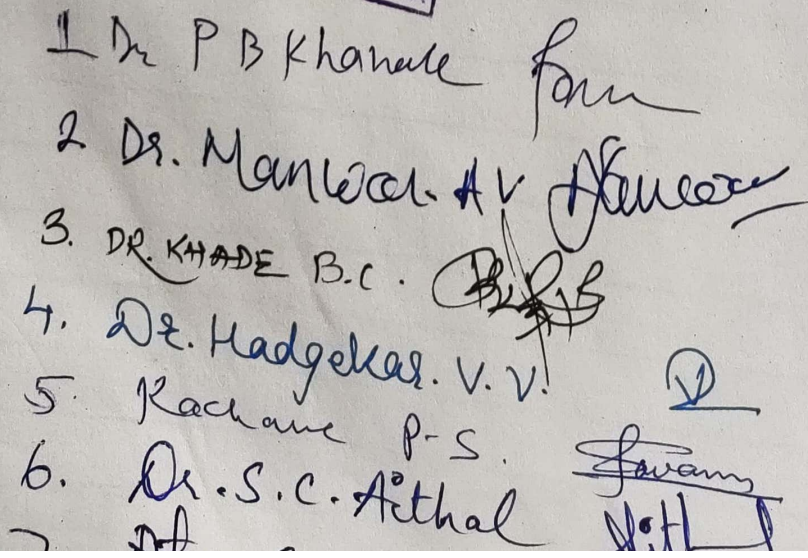 1 Dr P B Khanale
2. Dr. Manwar. A V
3. DR. KHADE B.C.
4. Dr. Hadgekar. V. V.
5. Rachave P-S.
6. Dr. S. C. Aithal
7